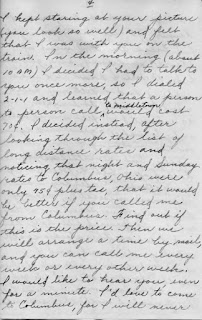 4
I kept staring at your picture
(you look so well) and felt
that I was with you on the
train. In the morning (about
10 AM) I decided I had to talk to
you once more, so I dialed
2-1-1 and learned that a person
to person call to Middletown would cost
70¢. I decided instead, after
looking through the list of
long distance rates and
noticing that night and Sunday
rates to Columbus, Ohio were
only 95¢ plus tax, that it would
be better if you called me
from Columbus. Find out if
this is the price. Then we
will arrange a time by mail,
and you can call me every
week or every other week.
I would like to hear you even
for a minute. I'd love to come
to Columbus, for I will never